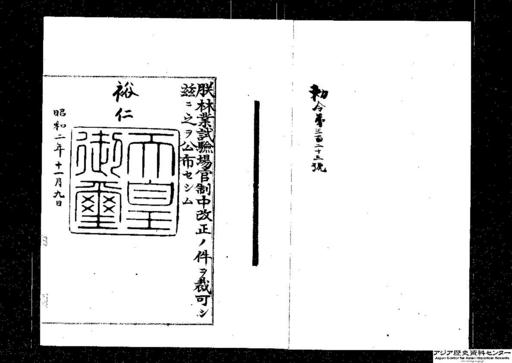 勅令第三百二十三號
朕林業試驗場官制中改正ノ件ヲ裁可シ
茲ニ之ヲ公布セシム
裕仁
天皇御璽
昭和二年十一月九日
アジア歴史資料センター
Japan Center for Asian Historical Records